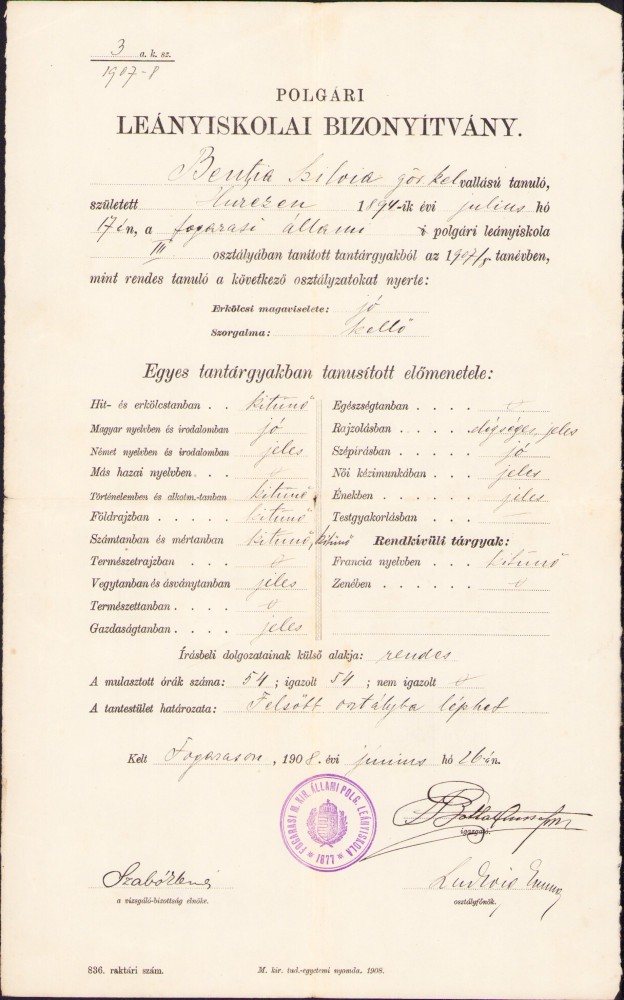 3 a. k. sz.
1907-8
POLGÁRI
LEÁNYISKOLAI BIZONYÍTVÁNY.
Bentia Szilvia gör. kel vallású tanuló,
született Hurezen 1894-ik évi julius hó
17 én, a fogarasi állami i polgári leányiskola
III osztályában tanított tantárgyakból az 1907/8 tanévben,
mint rendes tanuló a következő osztályzatokat nyerte:
Erkölcsi magaviselete: jó
Szorgalma: kellő
Egyes tantárgyakban tanusított előmenetele:
Hit- és erkölcstanban . . kitünő
Magyar nyelvben és irodalomban jó
Német nyelvben és irodalomban jeles
Más hazai nyelvben. . .
Történelemben és alkotm.-tanban kitünő
Földrajzban . . . . . kitünő
Számtanban és mértanban kitünő, kitünő
Természetrajzban . . .
Vegytanban és ásványtanban jeles
Természettanban . . . .
Gazdaságtanban . . . . jeles
Egészségtanban . . . .
Rajzolásban . . . . . elégséges, jeles
Szépírásban . . . . . jó
Női kézimunkában . . . jeles
Énekben . . . . . . jeles
Testgyakorlásban . . .
Rendkívüli tárgyak:
Francia nyelvben . . . kitünő
Zenében . . . . . .
Írásbeli dolgozatainak külső alakja: rendes
A mulasztott órák száma: 54 ; igazolt 54 ; nem igazolt
A tantestület határozata: Felsőbb osztályba léphet
Kelt Fogarason, 1908. évi június hó 26-án.
FOGARASI M. KIR. ÁLLAMI POLG. LEÁNYISKOLA
1877
igazgató.
Szabó Jenő
a vizsgáló-bizottság elnöke.
Ludwig
osztályfőnök.
836. raktári szám.
M. kir. tud.-egyetemi nyomda. 1908.